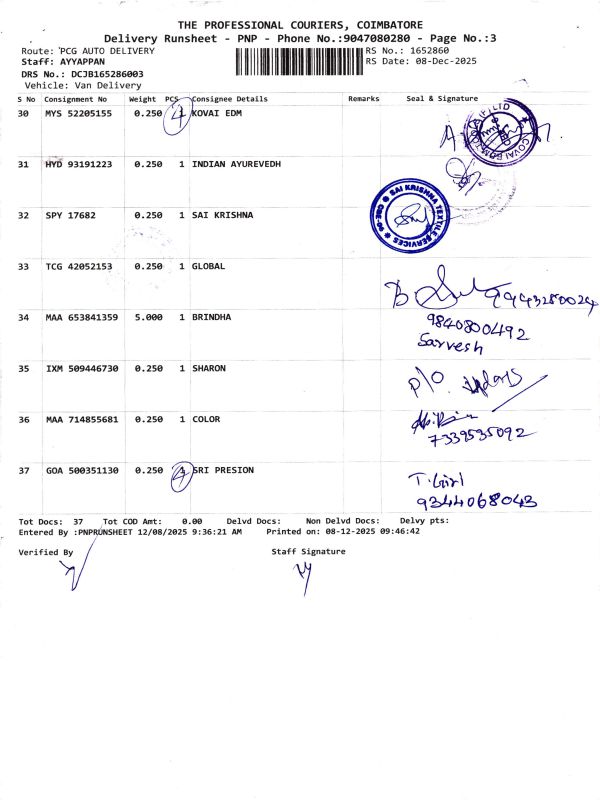 THE PROFESSIONAL COURIERS, COIMBATORE
Delivery Runsheet - PNP - Phone No.:9047080280 - Page No.:3
Route: PCG AUTO DELIVERY
RS No.: 1652860
Staff: AYYAPPAN
RS Date: 08-Dec-2025
DRS No.: DCJB165286003
Vehicle: Van Delivery
S No Consignment No Weight PCS Consignee Details Remarks Seal & Signature
30 MYS 52205155 0.250 KOVAI EDM
31 HYD 93191223 0.250 1 INDIAN AYUREVEDH
32 SPY 17682 0.250 1 SAI KRISHNA
SAI KRISHNA TEXTILE SERVICES
33 TCG 42052153 0.250 1 GLOBAL
34 MAA 653841359 5.000 1 BRINDHA
9840800492
Sarvesh
35 IXM 509446730 0.250 1 SHARON
P/O
36 MAA 714855681 0.250 1 COLOR
7339535092
37 GOA 500351130 0.250 SRI PRESION
9344068043
Tot Docs: 37 Tot COD Amt: 0.00 Delvd Docs: Non Delvd Docs: Delvy pts:
Entered By :PNPRUNSHEET 12/08/2025 9:36:21 AM Printed on: 08-12-2025 09:46:42
Verified By Staff Signature